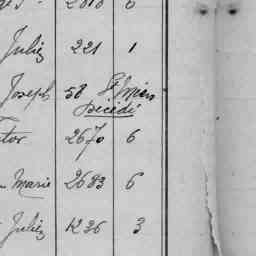 2818 6
Julie 221 1
Joseph 58
Décédé
tor 2670 6
Marie 2683 6
Julie 1236 3